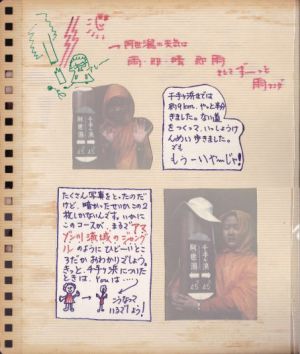 阿世潟の天気は
雨・即・晴 即 雨
そして ずーっと
雨ママ
千手ヶ浜までは
約9km、やっと粉
きました。ない道
をつくって、いっしょうけ
んめい 歩きました。
でも
もうーいやーじゃ!
千手ヶ浜
阿世潟
たくさん写真をとったのだ
けど、暗かったせいかこの2
枚しかないんです。いかに
このコースが、まるで"アマ
ゾン川流域のジャング
ル"のようにひどーいとこ
ろだか おわかりでしょう。
きっと、千手ヶ浜についた
ときは、Youは……
こうなって
いるでしょう!
千手ヶ浜
阿世潟